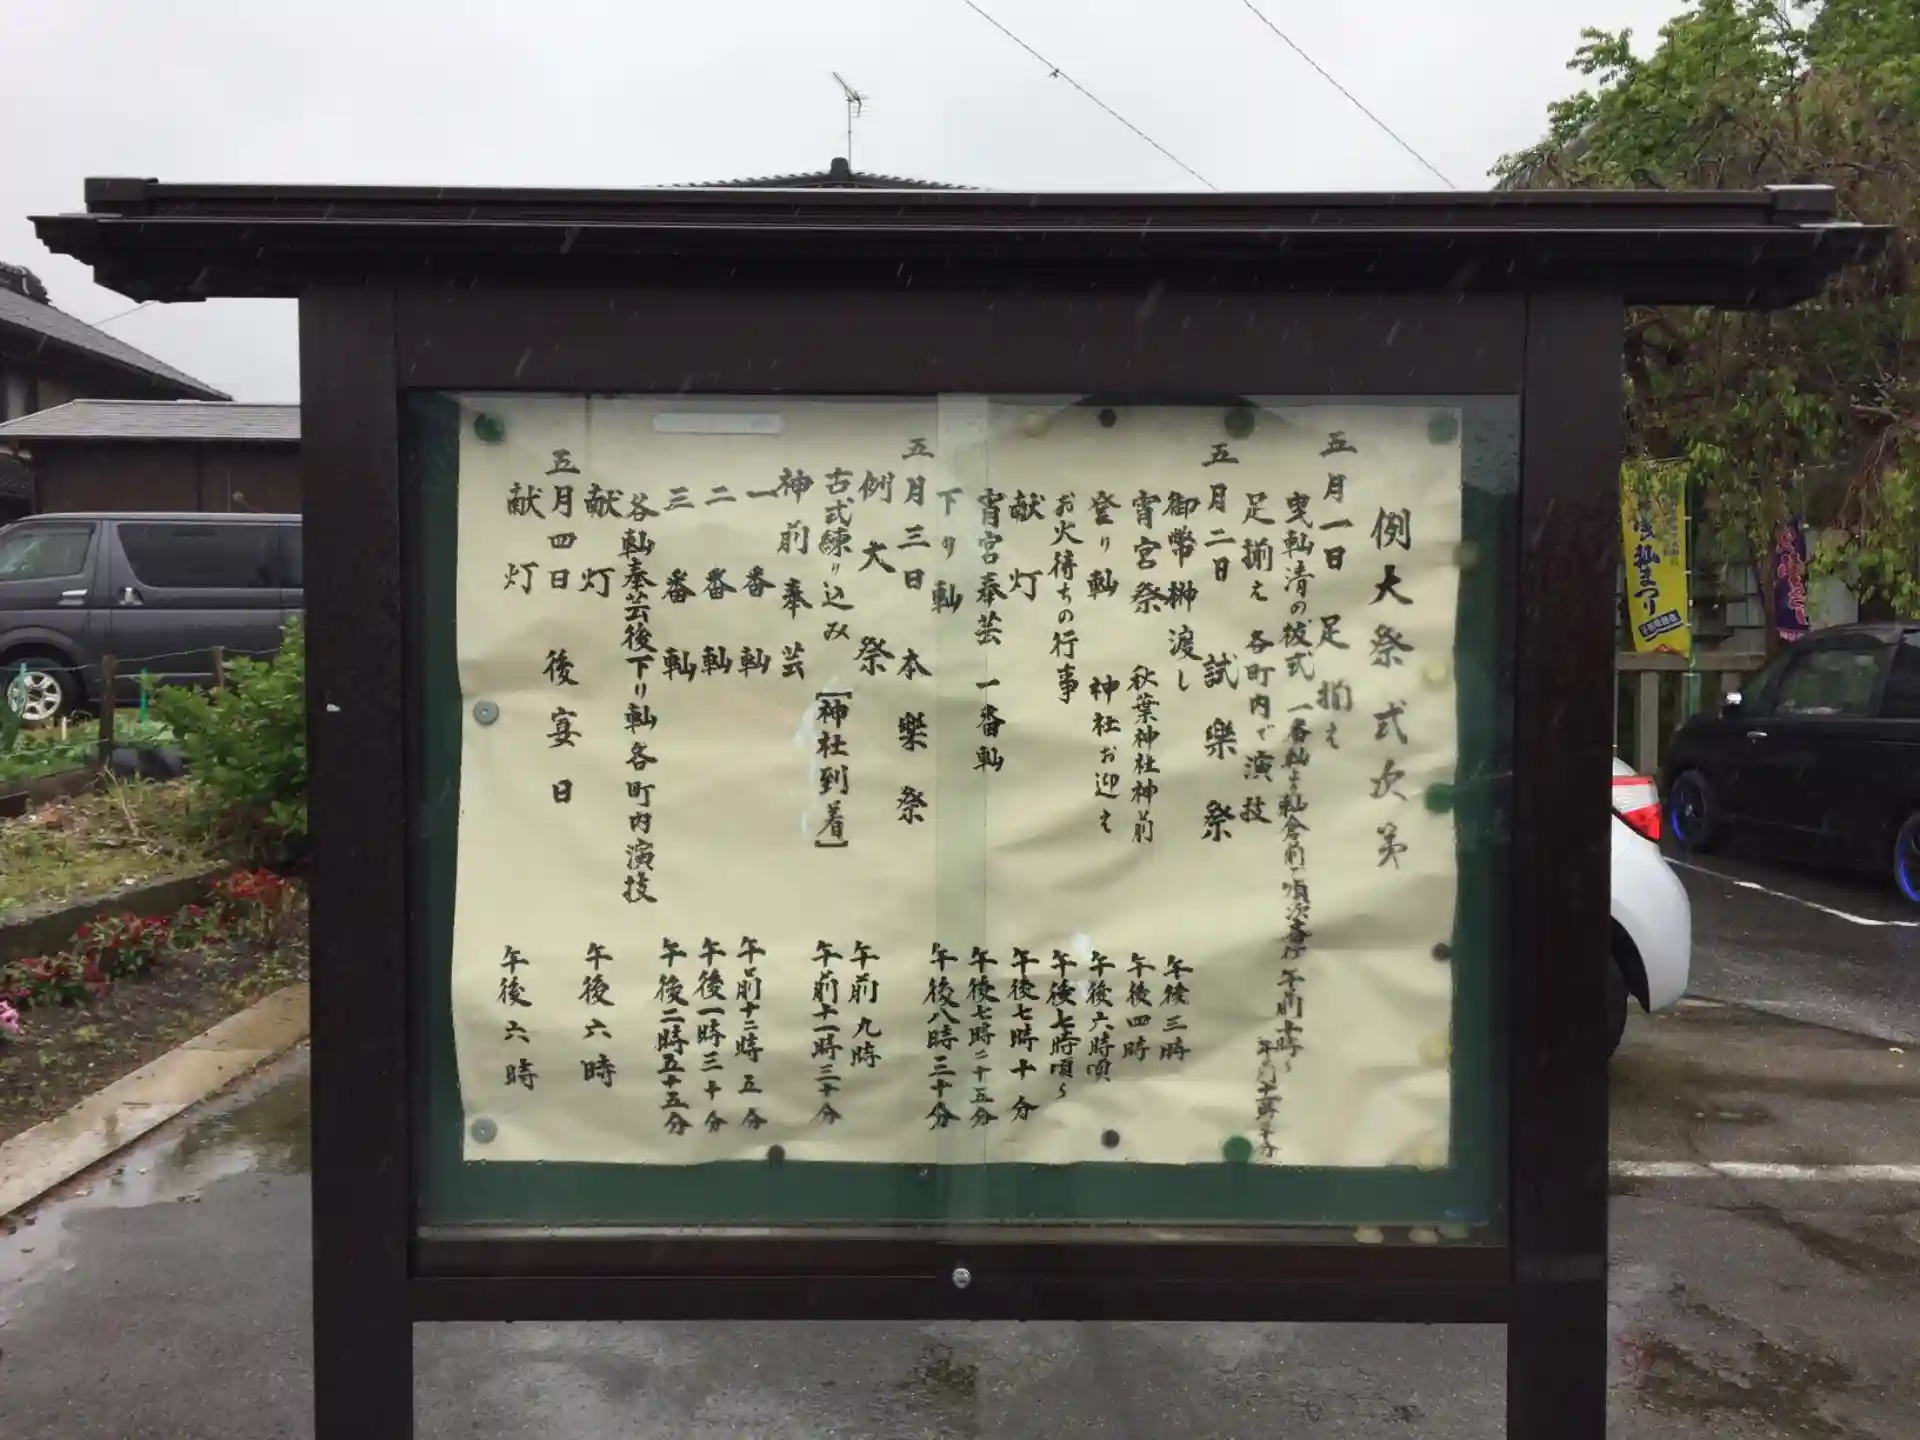 例大祭式次第
五月一日 足揃え
曳軕清の祓式 一番軕より軕倉前で順次奉行 午前十時〜
午前十一時三十分
足揃え 各町内で演技
五月二日 試楽祭
御幣榊渡し 午後三時
宵宮祭 秋葉神社神前 午後四時
登り軕 神社お迎え 午後六時頃
お火待ちの行事 午後七時頃〜
献灯 午後七時十分
宵宮奉芸 一番軕 午後七時二十五分
下り軕 午後八時三十分
五月三日 本楽祭
例大祭 午前九時
古式練り込み [神社到着] 午前十一時三十分
神前奉芸
一番軕 午前十二時五分
二番軕 午後一時三十分
三番軕 午後二時五十五分
各軕奉芸後下り軕各町内演技
献灯 午後六時
五月四日 後宴日
献灯 午後六時
軕まつり